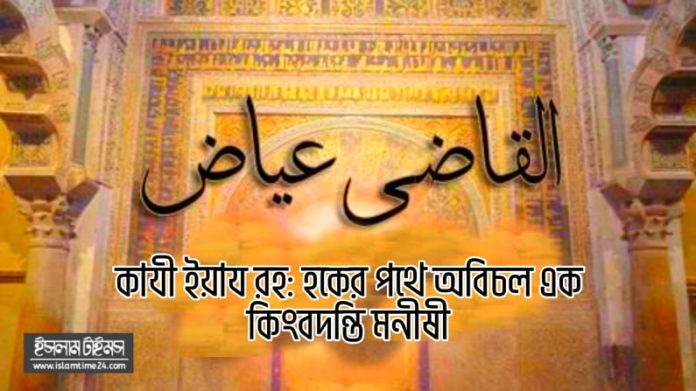 القاضى عياض
কাযী ইয়ায রহ: হকের পথে অবিচল এক
কিংবদন্তি মনীষী
ইসলাম টাইমস
www.islamtime24.com